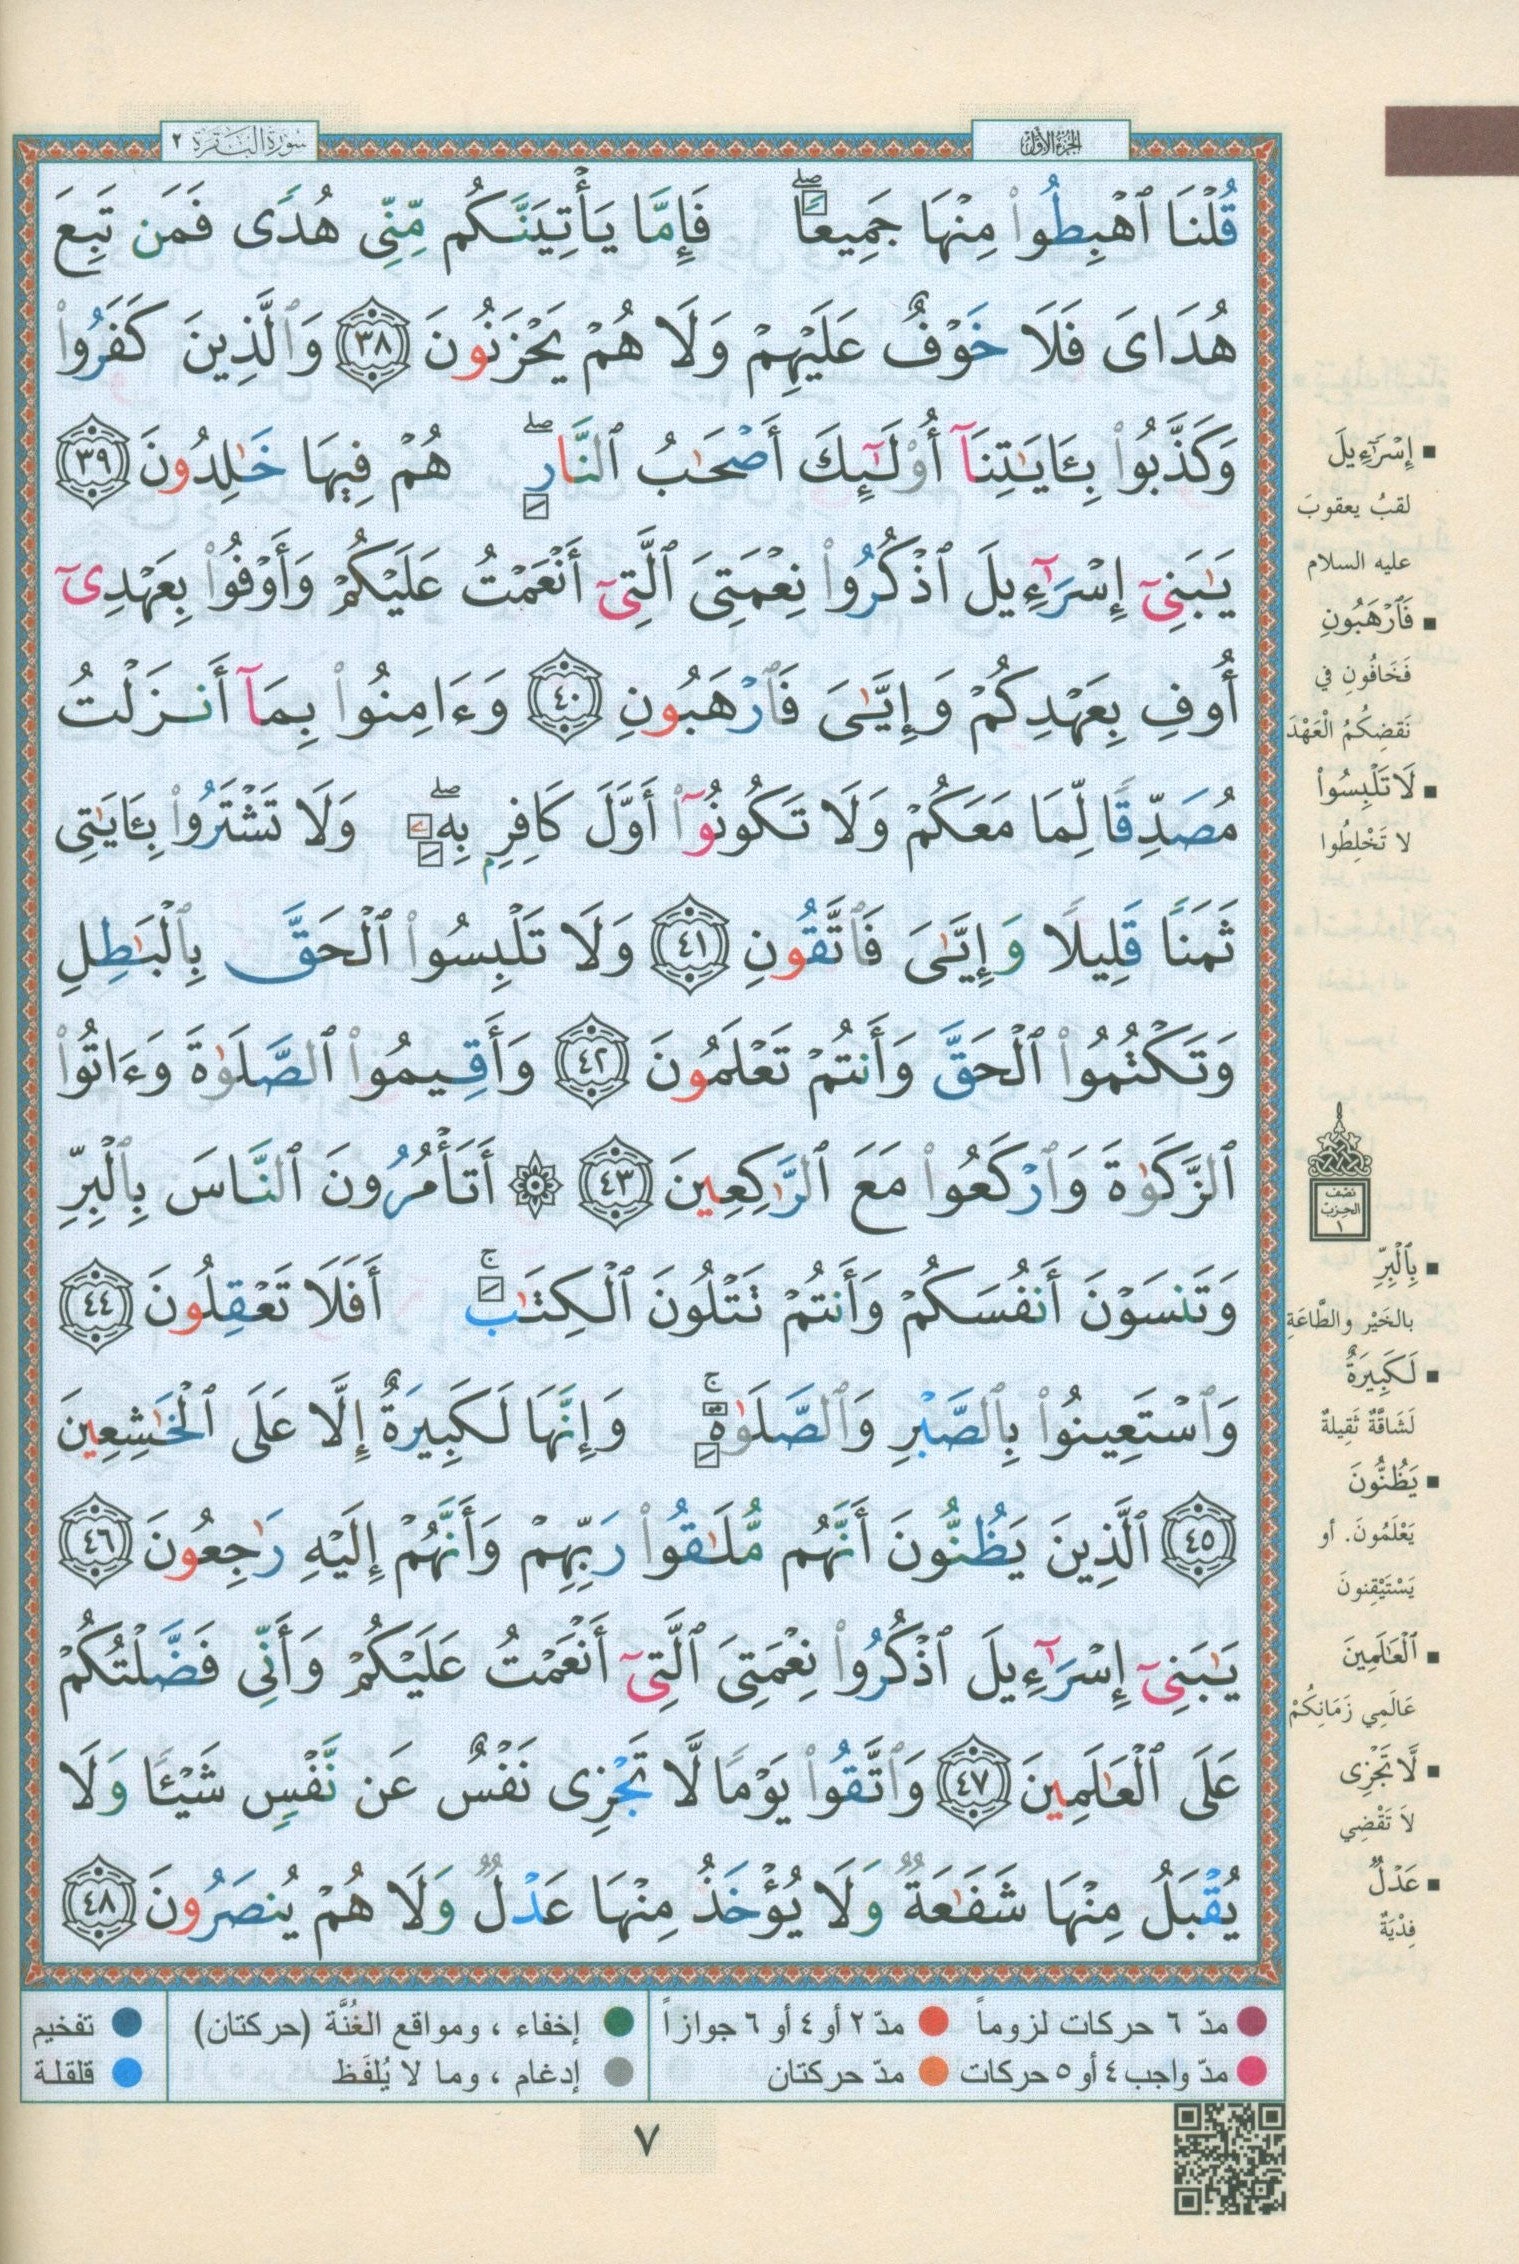 الجزء الأول
سورة البقرة ٢
قُلْنَا ٱهْبِطُوا۟ مِنْهَا جَمِيعًاۖ فَإِمَّا يَأْتِيَنَّكُم مِّنِّى هُدًى فَمَن تَبِعَ
هُدَاىَ فَلَا خَوْفٌ عَلَيْهِمْ وَلَا هُمْ يَحْزَنُونَ ٣٨ وَٱلَّذِينَ كَفَرُوا۟
وَكَذَّبُوا۟ بِـَٔايَـٰتِنَآ أُو۟لَـٰٓئِكَ أَصْحَـٰبُ ٱلنَّارِۖ هُمْ فِيهَا خَـٰلِدُونَ ٣٩
يَـٰبَنِىٓ إِسْرَٰٓءِيلَ ٱذْكُرُوا۟ نِعْمَتِىَ ٱلَّتِىٓ أَنْعَمْتُ عَلَيْكُمْ وَأَوْفُوا۟ بِعَهْدِىٓ
أُوفِ بِعَهْدِكُمْ وَإِيَّـٰىَ فَٱرْهَبُونِ ٤٠ وَءَامِنُوا۟ بِمَآ أَنزَلْتُ
مُصَدِّقًا لِّمَا مَعَكُمْ وَلَا تَكُونُوٓا۟ أَوَّلَ كَافِرٍۭ بِهِۦۖ وَلَا تَشْتَرُوا۟ بِـَٔايَـٰتِى
ثَمَنًا قَلِيلًا وَإِيَّـٰىَ فَٱتَّقُونِ ٤١ وَلَا تَلْبِسُوا۟ ٱلْحَقَّ بِٱلْبَـٰطِلِ
وَتَكْتُمُوا۟ ٱلْحَقَّ وَأَنتُمْ تَعْلَمُونَ ٤٢ وَأَقِيمُوا۟ ٱلصَّلَوٰةَ وَءَاتُوا۟
ٱلزَّكَوٰةَ وَٱرْكَعُوا۟ مَعَ ٱلرَّٰكِعِينَ ٤٣ ۞ أَتَأْمُرُونَ ٱلنَّاسَ بِٱلْبِرِّ
وَتَنسَوْنَ أَنفُسَكُمْ وَأَنتُمْ تَتْلُونَ ٱلْكِتَـٰبَۚ أَفَلَا تَعْقِلُونَ ٤٤
وَٱسْتَعِينُوا۟ بِٱلصَّبْرِ وَٱلصَّلَوٰةِۚ وَإِنَّهَا لَكَبِيرَةٌ إِلَّا عَلَى ٱلْخَـٰشِعِينَ
٤٥ ٱلَّذِينَ يَظُنُّونَ أَنَّهُم مُّلَـٰقُوا۟ رَبِّهِمْ وَأَنَّهُمْ إِلَيْهِ رَٰجِعُونَ ٤٦
يَـٰبَنِىٓ إِسْرَٰٓءِيلَ ٱذْكُرُوا۟ نِعْمَتِىَ ٱلَّتِىٓ أَنْعَمْتُ عَلَيْكُمْ وَأَنِّى فَضَّلْتُكُمْ
عَلَى ٱلْعَـٰلَمِينَ ٤٧ وَٱتَّقُوا۟ يَوْمًا لَّا تَجْزِى نَفْسٌ عَن نَّفْسٍ شَيْـًٔا وَلَا
يُقْبَلُ مِنْهَا شَفَـٰعَةٌ وَلَا يُؤْخَذُ مِنْهَا عَدْلٌ وَلَا هُمْ يُنصَرُونَ ٤٨
▪ إِسْرَٰٓءِيلَ
لقبُ يعقوبَ
عليه السلام
▪ فَٱرْهَبُونِ
فَخَافُونِ في
نَقضِكُمُ الْعَهْدَ
▪ لَا تَلْبِسُوا۟
لا تَخْلِطُوا
نصف
الحزب
١
▪ بِٱلْبِرِّ
بالخَيْر والطَّاعَةِ
▪ لَكَبِيرَةٌ
لَشَاقَّةٌ ثَقِيلةٌ
▪ يَظُنُّونَ
يَعْلَمُونَ. أو
يَسْتَيْقِنونَ
▪ ٱلْعَـٰلَمِينَ
عَالَمِي زَمَانِكُمْ
▪ لَّا تَجْزِى
لاَ تَقْضِي
▪ عَدْلٌ
فِدْيَةٌ
مدّ ٦ حركات لزوماً مدّ ٢ أو ٤ أو ٦ جوازاً
مدّ واجب ٤ أو ٥ حركات مدّ حركتان
إخفاء ، ومواقع الغُنَّة (حركتان)
إدغام ، وما لا يُلفَظ
تفخيم
قلقلة
٧